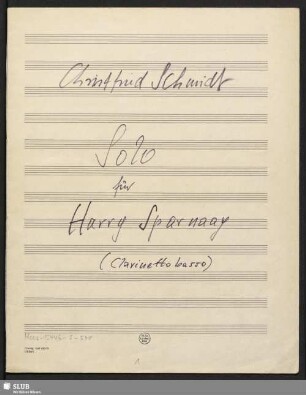 Christfried Schmidt
Solo
für
Harry Sparnaay
(Clarinetto basso)
SLUB
Wir führen Wissen.